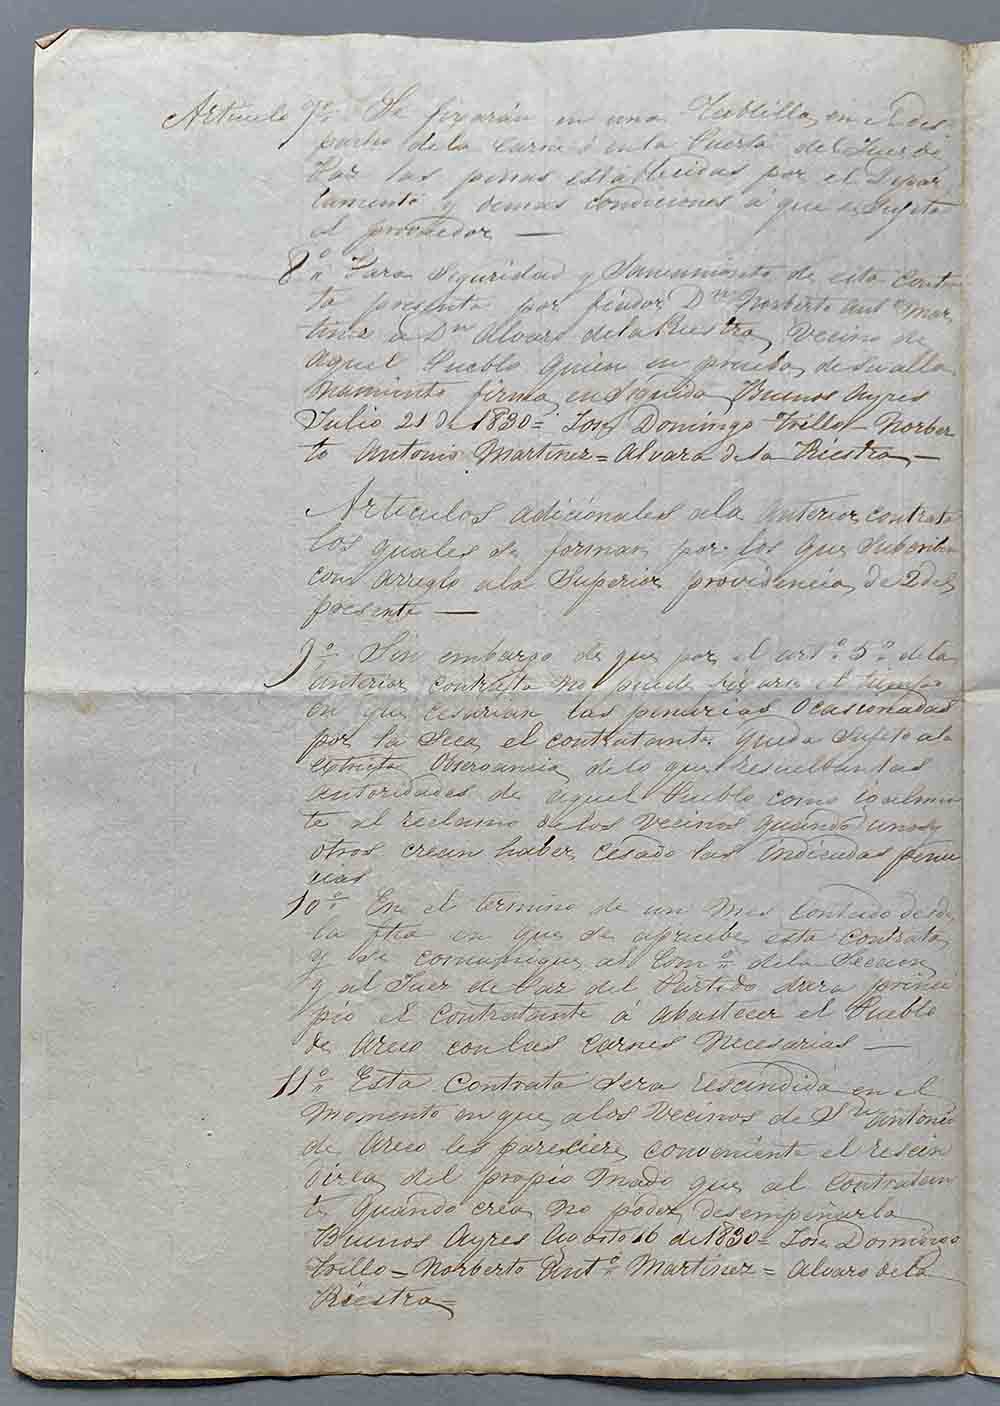 Articulo 7º Se fixarán en una Tablilla en el des
pacho de la Carne ó en la Puerta del Juez de
Paz las penas establecidas por el Depar
tamento y demas condiciones á que es Sujeto
el proveedor —
8º Para Seguridad y Saneamiento de esta Contra
ta presenta por fiador Dn Norberto Antº Mar
tinez a Dn Alvaro de la Riestra, Vecino de
aquel Pueblo quien en prueba de su alla
namiento firma en Seguida Buenos Ayres
Julio 21 de 1830 = Jose Domingo Trillo = Norber
to Antonio Martinez = Alvaro de la Riestra —
Articulos adicionales a la anterior contrata
los quales se forman por los que Subcriben
con arreglo a la Superior providencia de 2 del
presente —
9º Sin embargo de que por el artº 5º de la
anterior contrata no puede fixarse el tiempo
en que cesarian las penurias Ocasionadas
por la Seca, el contratante queda Sujeto a la
extricta Observancia de lo que resuelban las
autoridades de aquel Pueblo como igualmen
te al reclamo de los Vecinos quando unos y
otros crean haber cesado las indicadas penu
rias
10º En el termino de un Mes Contado desde
la fha en que se apruebe esta contrata
y se comunique al Comº de la Seccion
y al Juez de Paz del Partido dara princi
pio el Contratante á abastecer el Pueblo
de Areco con las Carnes Necesarias —
11º Esta Contrata Sera rescindida en el
Momento en que a los Vecinos de Sn Antonio
de Areco les pareciere conveniente el rescin
dirla, del propio modo que al Contratan
te quando crea no poder desempeñarla
Buenos Ayres Agosto 16 de 1830 = Jose Domingo
Trillo = Norberto Antº Martinez = Alvaro de la
Riestra =